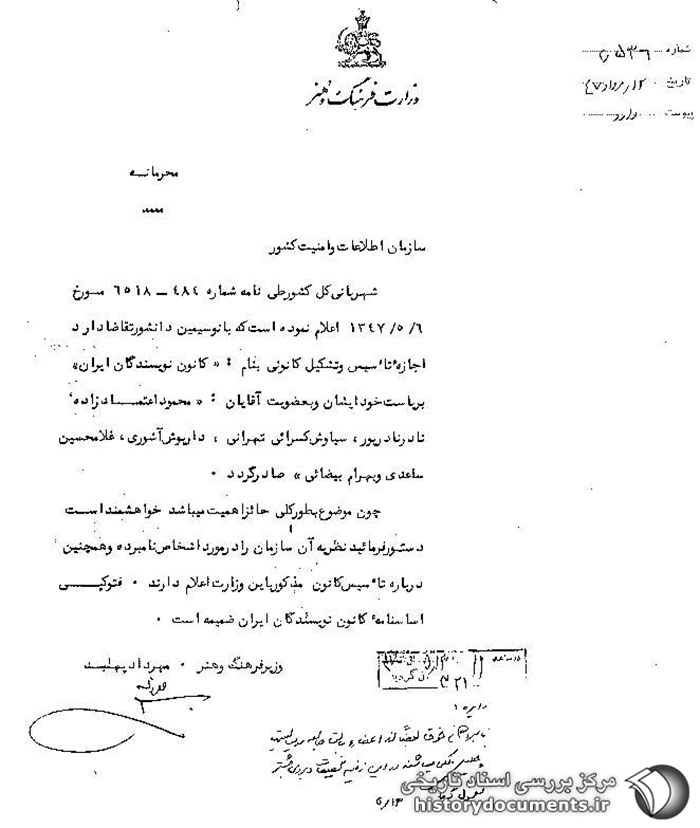 وزارت فرهنگ و هنر
شماره
تاریخ ۱۲ مرداد ۴۷
پیوست دارد
محرمانه
سازمان اطلاعات وامنیت کشور
شهربانی کل کشورطی نامه شماره ۴۸۴ – ۶۵۱۸ مورخ
۱۳۴۷/۵/۶ اعلام نموده است که بانوسیمین دانشورتقاضادارد
اجازه تأسیس وتشکیل کانونی بنام : « کانون نویسندگان ایران»
بریاست خودایشان وبعضویت آقایان : « محموداعتمـادزاده،
نادرنادرپور، سیاوش کسرائی تهرانی ، داریوش آشوری، غلامحسین
ساعدی وبهرام بیضائی » صادرگردد .
چون موضوع بطورکلی حائزاهمیت میباشد خواهشمنداست
دستورفرمائیدنظریه آن سازمان رادرمورداشخاص نامبرده وهمچنین
درباره تأسیس کانون مذکورباین وزارت اعلام دارند . فتوکپـی
اساسنامه کانون نویسندگان ایران ضمیمه است .
وزیرفرهنگ وهنر . مهردادپهلبـد
مرکز بررسی اسناد تاریخی
historydocuments.ir